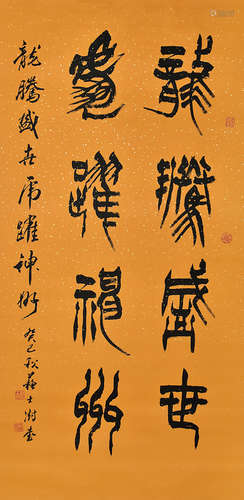 龍騰盛世
虎躍神州
龍騰盛世虎躍神州 癸巳秋蘇士澍書